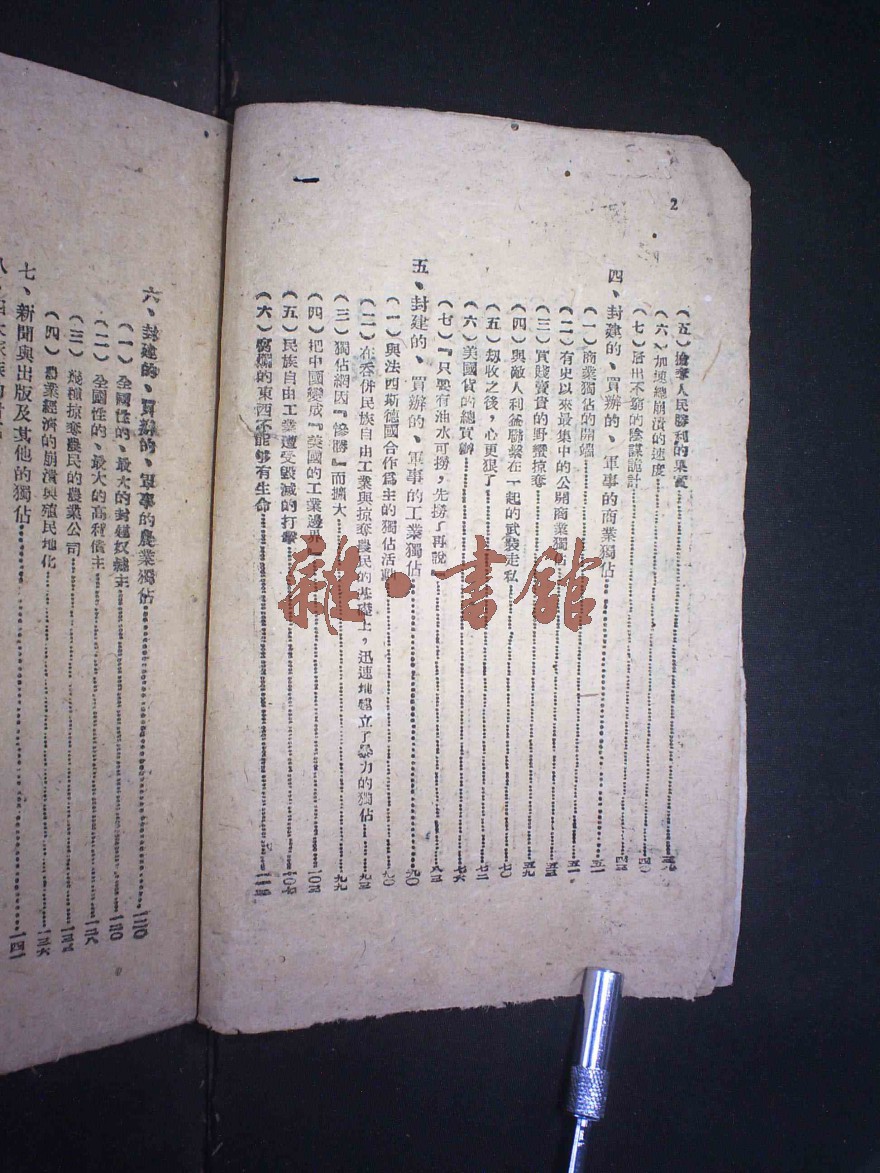 2
（五）搶奪人民勝利的果實
（六）加速總崩潰的速度
（七）層出不窮的陰謀詭計
四、封建的、買辦的、軍事的商業獨佔……五一
（一）商業獨佔的開端……五一
（二）有史以來最集中的公開商業獨佔
（三）買賤賣貴的野蠻掠奪……五九
（四）與敵人利益聯繫在一起的武裝走私……七〇
（五）刼收之後，心更狠了……七二
（六）美國貨的總買辦……七六
（七）『只要有油水可撈，先撈了再說』……八三
五、封建的、買辦的、軍事的工業獨佔……九〇
（一）與法西斯德國合作爲主的獨佔活動……九〇
（二）在吞併民族自由工業與掠奪農民的基礎上，迅速地建立了暴力的獨佔……九三
（三）獨佔網因『慘勝』而擴大……九九
（四）把中國變成『美國的工業邊界』……一〇三
（五）民族自由工業遭受毀滅的打擊……一〇七
（六）腐爛的東西不能夠有生命
六、封建的、買辦的、軍事的農業獨佔……一二〇
（一）全國性的、最大的封建奴隸主……一二〇
（二）全國性的、最大的高利債主……一二八
（三）幾種掠奪農民的農業公司
（四）農業經濟的崩潰與殖民地化……一三六
七、新聞與出版及其他的獨佔……一四一
雜·書館